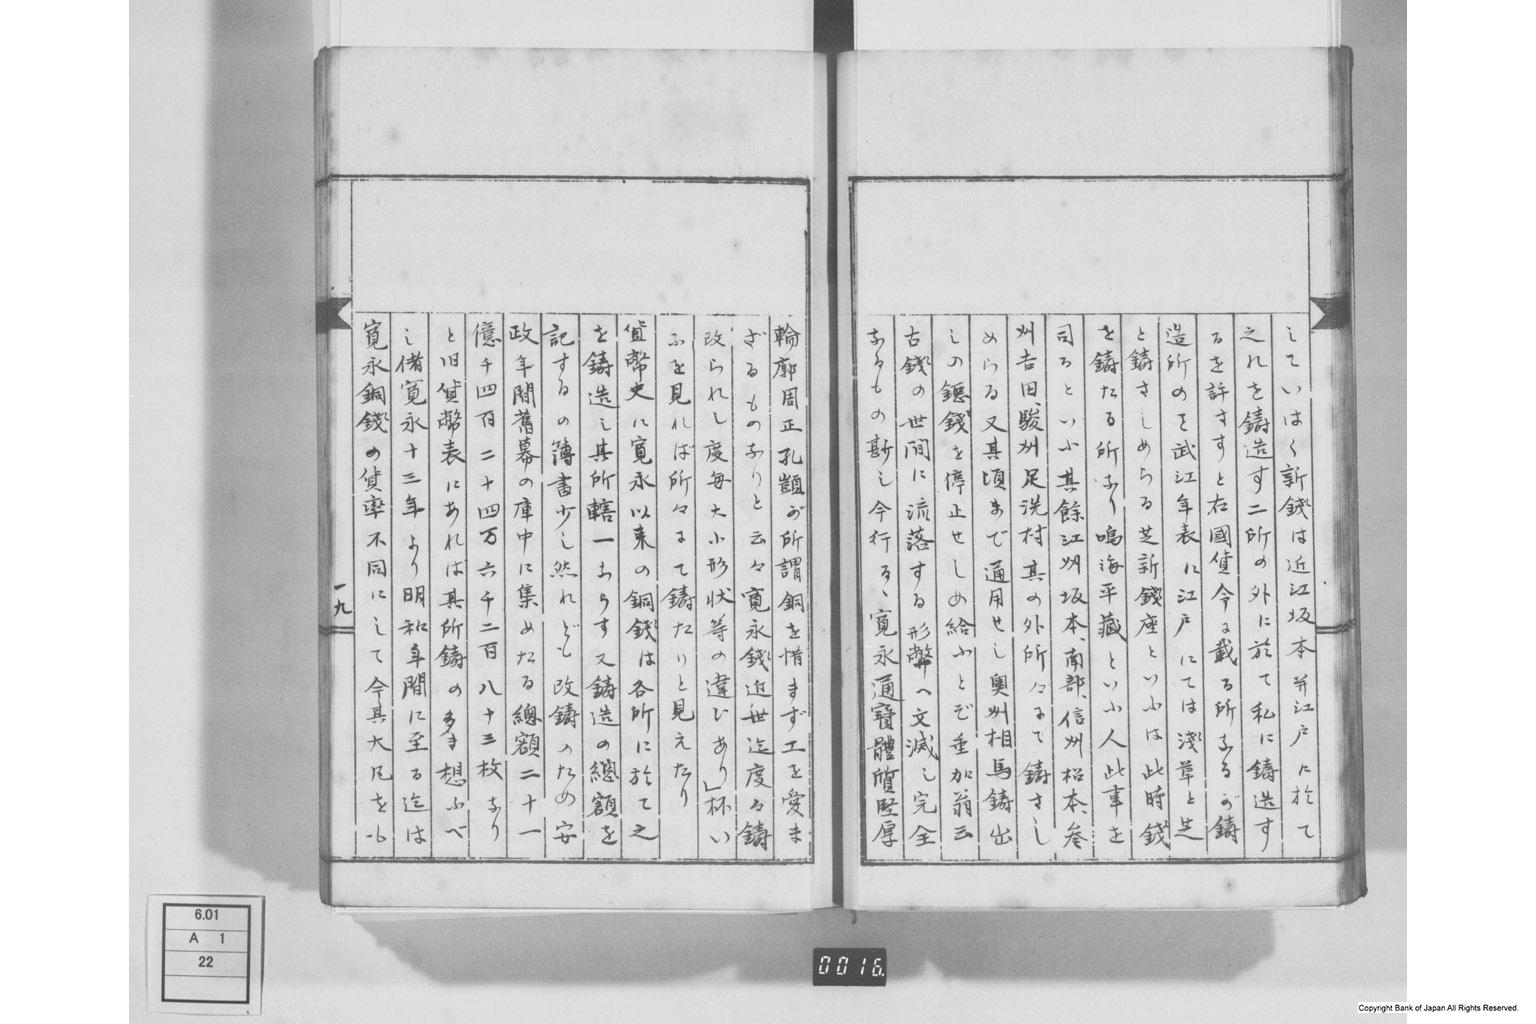 していはく新錢は近江坂本并江戸に於て
之れを鋳造す二所の外に於て私に鋳造す
るを許さすと右國貨今に載る所なるが鋳
造所のこと武江年表に江戸にては淺草と芝
と鋳さしめらる芝新錢座といふは此時錢
を鋳たる所なり鳴海平藏といふ人此事を
司るといふ其餘江州坂本、南部、信州松本、参
州吉田、駿州足洗村其の外所々にて鋳さし
めらる又其頃まで通用せし奥州相馬鋳出
しの鐚錢を停止せしめ給ふとぞ重加翁云
古錢の世間に流落する形弊へ文滅し完全
なるもの尠し今行るゝ寛永通寳體質堅厚
輪廓周正孔顗が所謂銅を惜まず工を愛ま
ざるものなりと云々寛永錢近世迄度々鋳
改られし度毎大小形状等の違ひあり」杯い
ふを見れば所々にて鋳たりと見えたり
貨幣史に寛永以来の銅錢は各所に於て之
を鋳造し其所轄一ならす又鋳造の總額を
記するの簿書少し然れども改鋳のため安
政年間舊幕の庫中に集めたる總額二十一
億千四百二十四万六千二百八十三枚なり
と旧貨幣表にあれは其所鋳の多き想ふべ
し偖寛永十三年より明和年間に至る迄は
寛永銅錢の貨率不同にして今其大凡を以
一九
6.01
A 1
22
0016.
Copyright Bank of Japan All Rights Reserved.